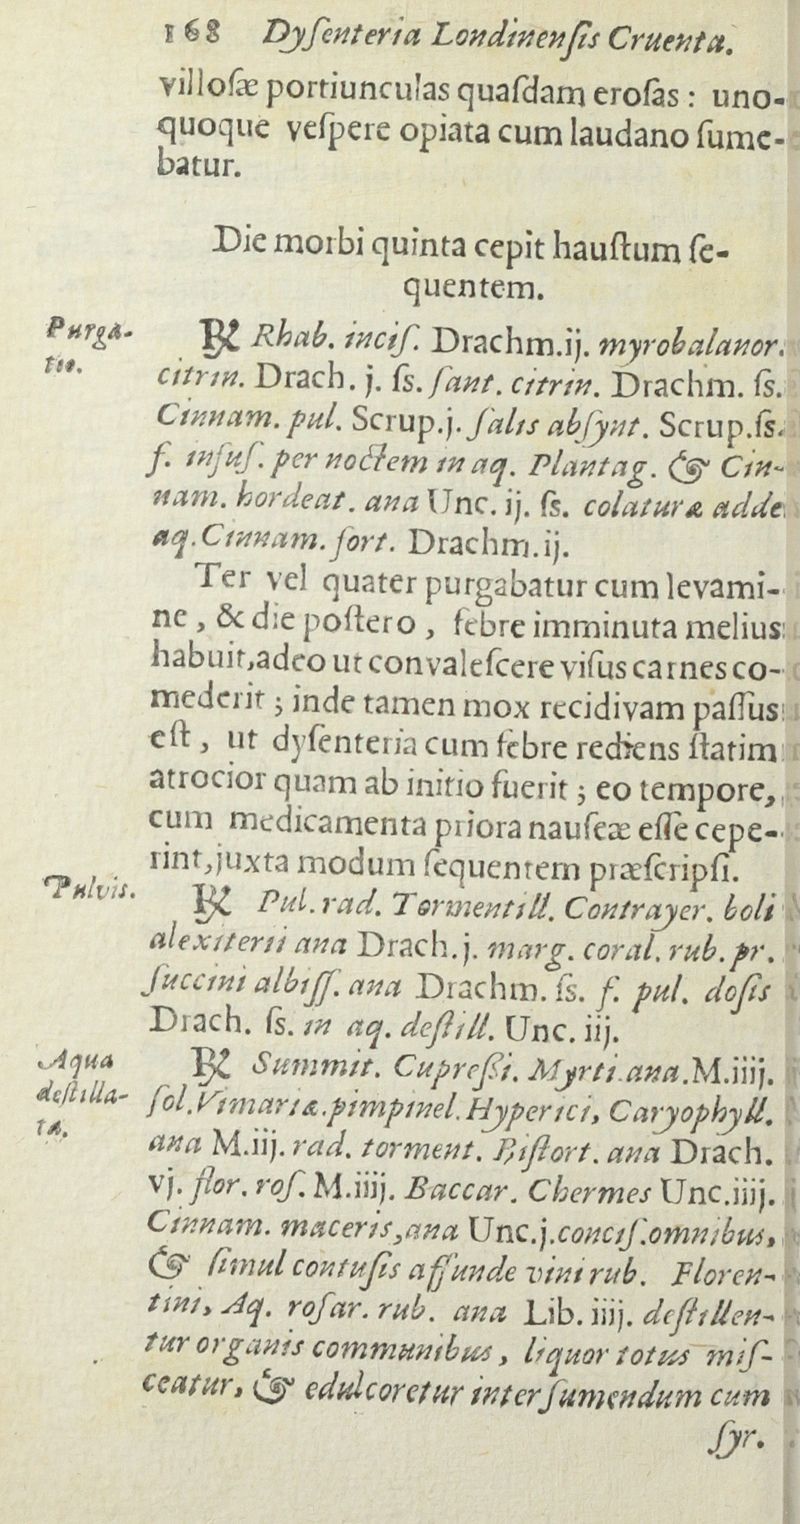 168 Dyſenteria Londinenſis Cruenta.
villoſæ portiunculas quaſdam eroſas : uno-
quoque veſpere opiata cum laudano ſume-
batur.
Die morbi quinta cepit hauſtum ſe-
quentem.
Purga-
tio.
℞ Rhab. inciſ. Drachm.ij. myrobalanor.
citrin. Drach. j. ſs. ſant. citrin. Drachm. ſs.
Cinnam. pul. Scrup.j. ſalis abſynt. Scrup.ſs.
f. infuſ. per noctem in aq. Plantag. & Cin-
nam. hordeat. ana Unc. ij. ſs. colaturæ adde
aq. Cinnam. fort. Drachm.ij.
Ter vel quater purgabatur cum levami-
ne , & die poſtero , febre imminuta melius
habuit,adeo ut convaleſcere viſus carnes co-
mederit ; inde tamen mox recidivam paſſus
eſt , ut dyſenteria cum febre rediens ſtatim
atrocior quam ab initio fuerit ; eo tempore,
cum medicamenta priora nauſeæ eſſe cepe-
rint,juxta modum ſequentem præſcripſi.
Pulvis.
℞ Pul. rad. Tormentill. Contrayer. boli
alexiterii ana Drach.j. marg. coral. rub. pr.
ſuccini albiſſ. ana Drachm. ſs. f. pul. doſis
Drach. ſs. in aq. deſtill. Unc. iij.
Aqua
deſtilla-
ta.
℞ Summit. Cupreſſi. Myrti ana.M.iiij.
fol.Vimariæ.pimpinel.Hyperici, Caryophyll.
ana M.iij. rad. torment. Biſtort. ana Drach.
vj. flor. roſ. M.iiij. Baccar. Chermes Unc.iiij.
Cinnam. maceris,ana Unc.j.conciſ.omnibus,
& ſimul contuſis affunde vini rub. Floren-
tini, Aq. roſar. rub. ana Lib. iiij. deſtillen-
tur organis communibus, liquor totus miſ-
ceatur, & edulcoretur inter ſumendum cum
ſyr.